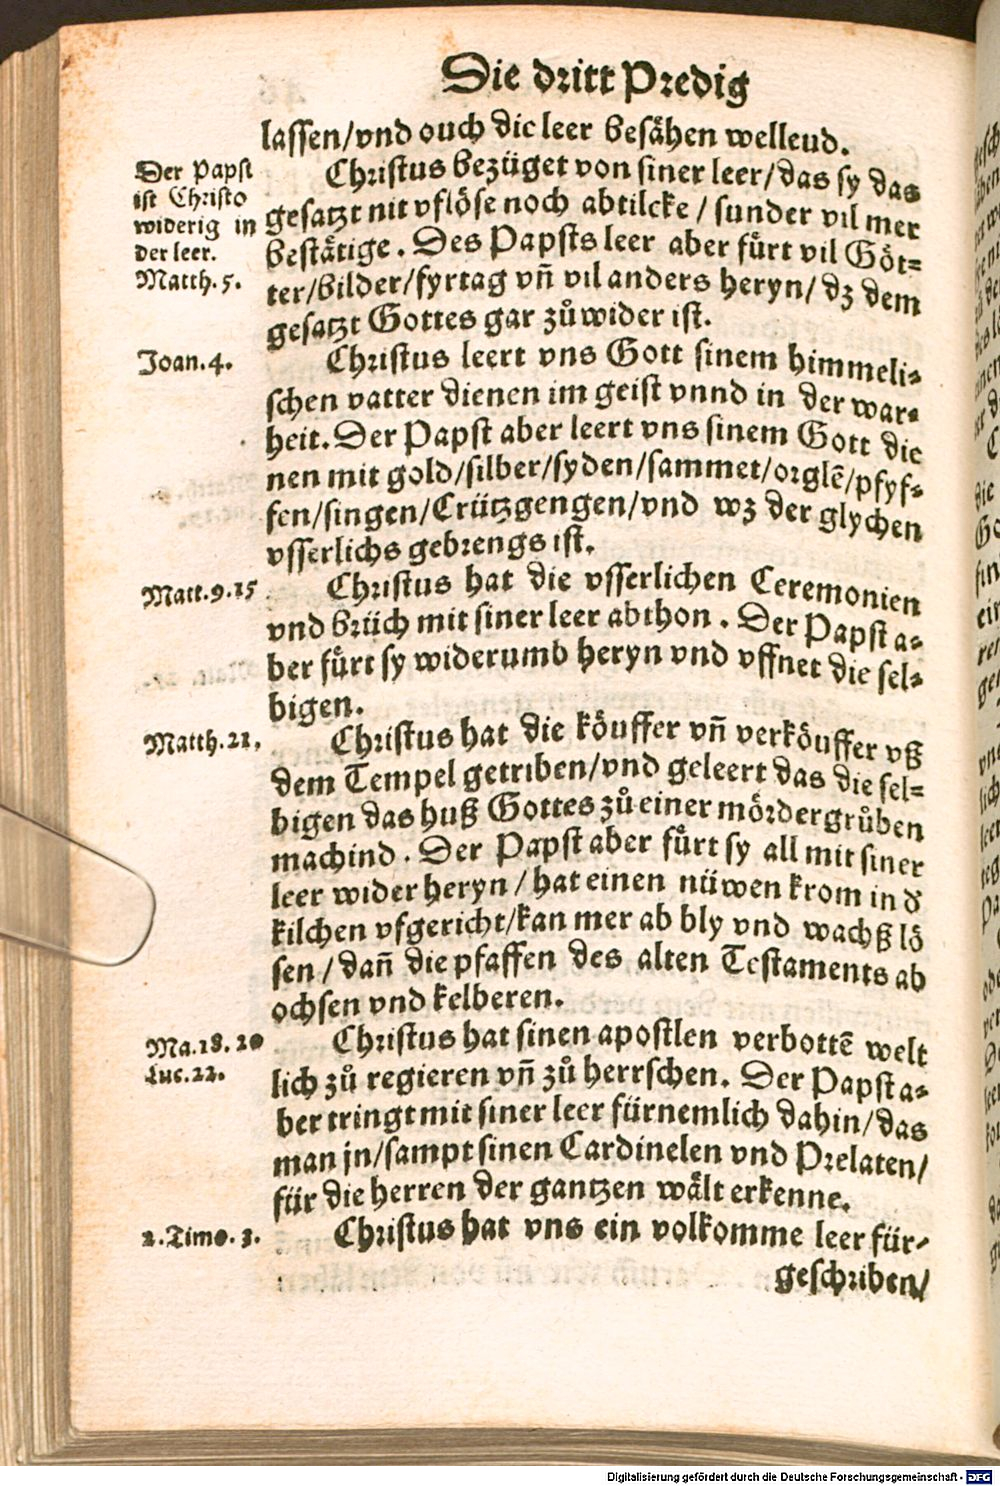 Die dritt Predig
lassen/vnd ouch die leer besähen welleud.
Der Papst
ist Christo
widerig in
der leer.
Matth. 5.
Christus bezüget von siner leer/das sy das
gesatzt nit vflöse noch abtilcke / sunder vil mer
bestätige. Des Papsts leer aber fuͤrt vil Göt-
ter/bilder/fyrtag vñ vil anders heryn/ dz dem
gesatzt Gottes gar zuͦwider ist.
Joan. 4.
Christus leert vns Gott sinem himmeli-
schen vatter dienen im geist vnnd in der war-
heit. Der Papst aber leert vns sinem Gott die
nen mit gold/silber/syden/sammet/orglē/pfyf-
fen/singen/Crützgengen/vnd wz der glychen
vsserlichs gebrengs ist.
Matt. 9. 15
Christus hat die vsserlichen Ceremonien
vnd brüch mit siner leer abthon. Der Papst a-
ber fuͤrt sy widerumb heryn vnd vffnet die sel-
bigen.
Matth. 21,
Christus hat die köuffer vñ verköuffer vß
dem Tempel getriben/vnd geleert das die sel-
bigen das huß Gottes zuͦ einer mördergruͦben
machind. Der Papst aber fuͤrt sy all mit siner
leer wider heryn / hat einen nüwen krom in d'
kilchen vfgericht/kan mer ab bly vnd wachß lö
sen / dañ die pfaffen des alten Testaments ab
ochsen vnd kelberen.
Ma. 18. 20
Luc. 22.
Christus hat sinen apostlen verbottē welt
lich zuͦ regieren vñ zuͦ herrschen. Der Papst a-
ber tringt mit siner leer fürnemlich dahin/das
man jn/sampt sinen Cardinelen vnd Prelaten/
für die herren der gantzen wält erkenne.
2. Timo. 3.
Christus hat vns ein volkomme leer für-
geschriben/
Digitalisierung gefördert durch die Deutsche Forschungsgemeinschaft - DFG